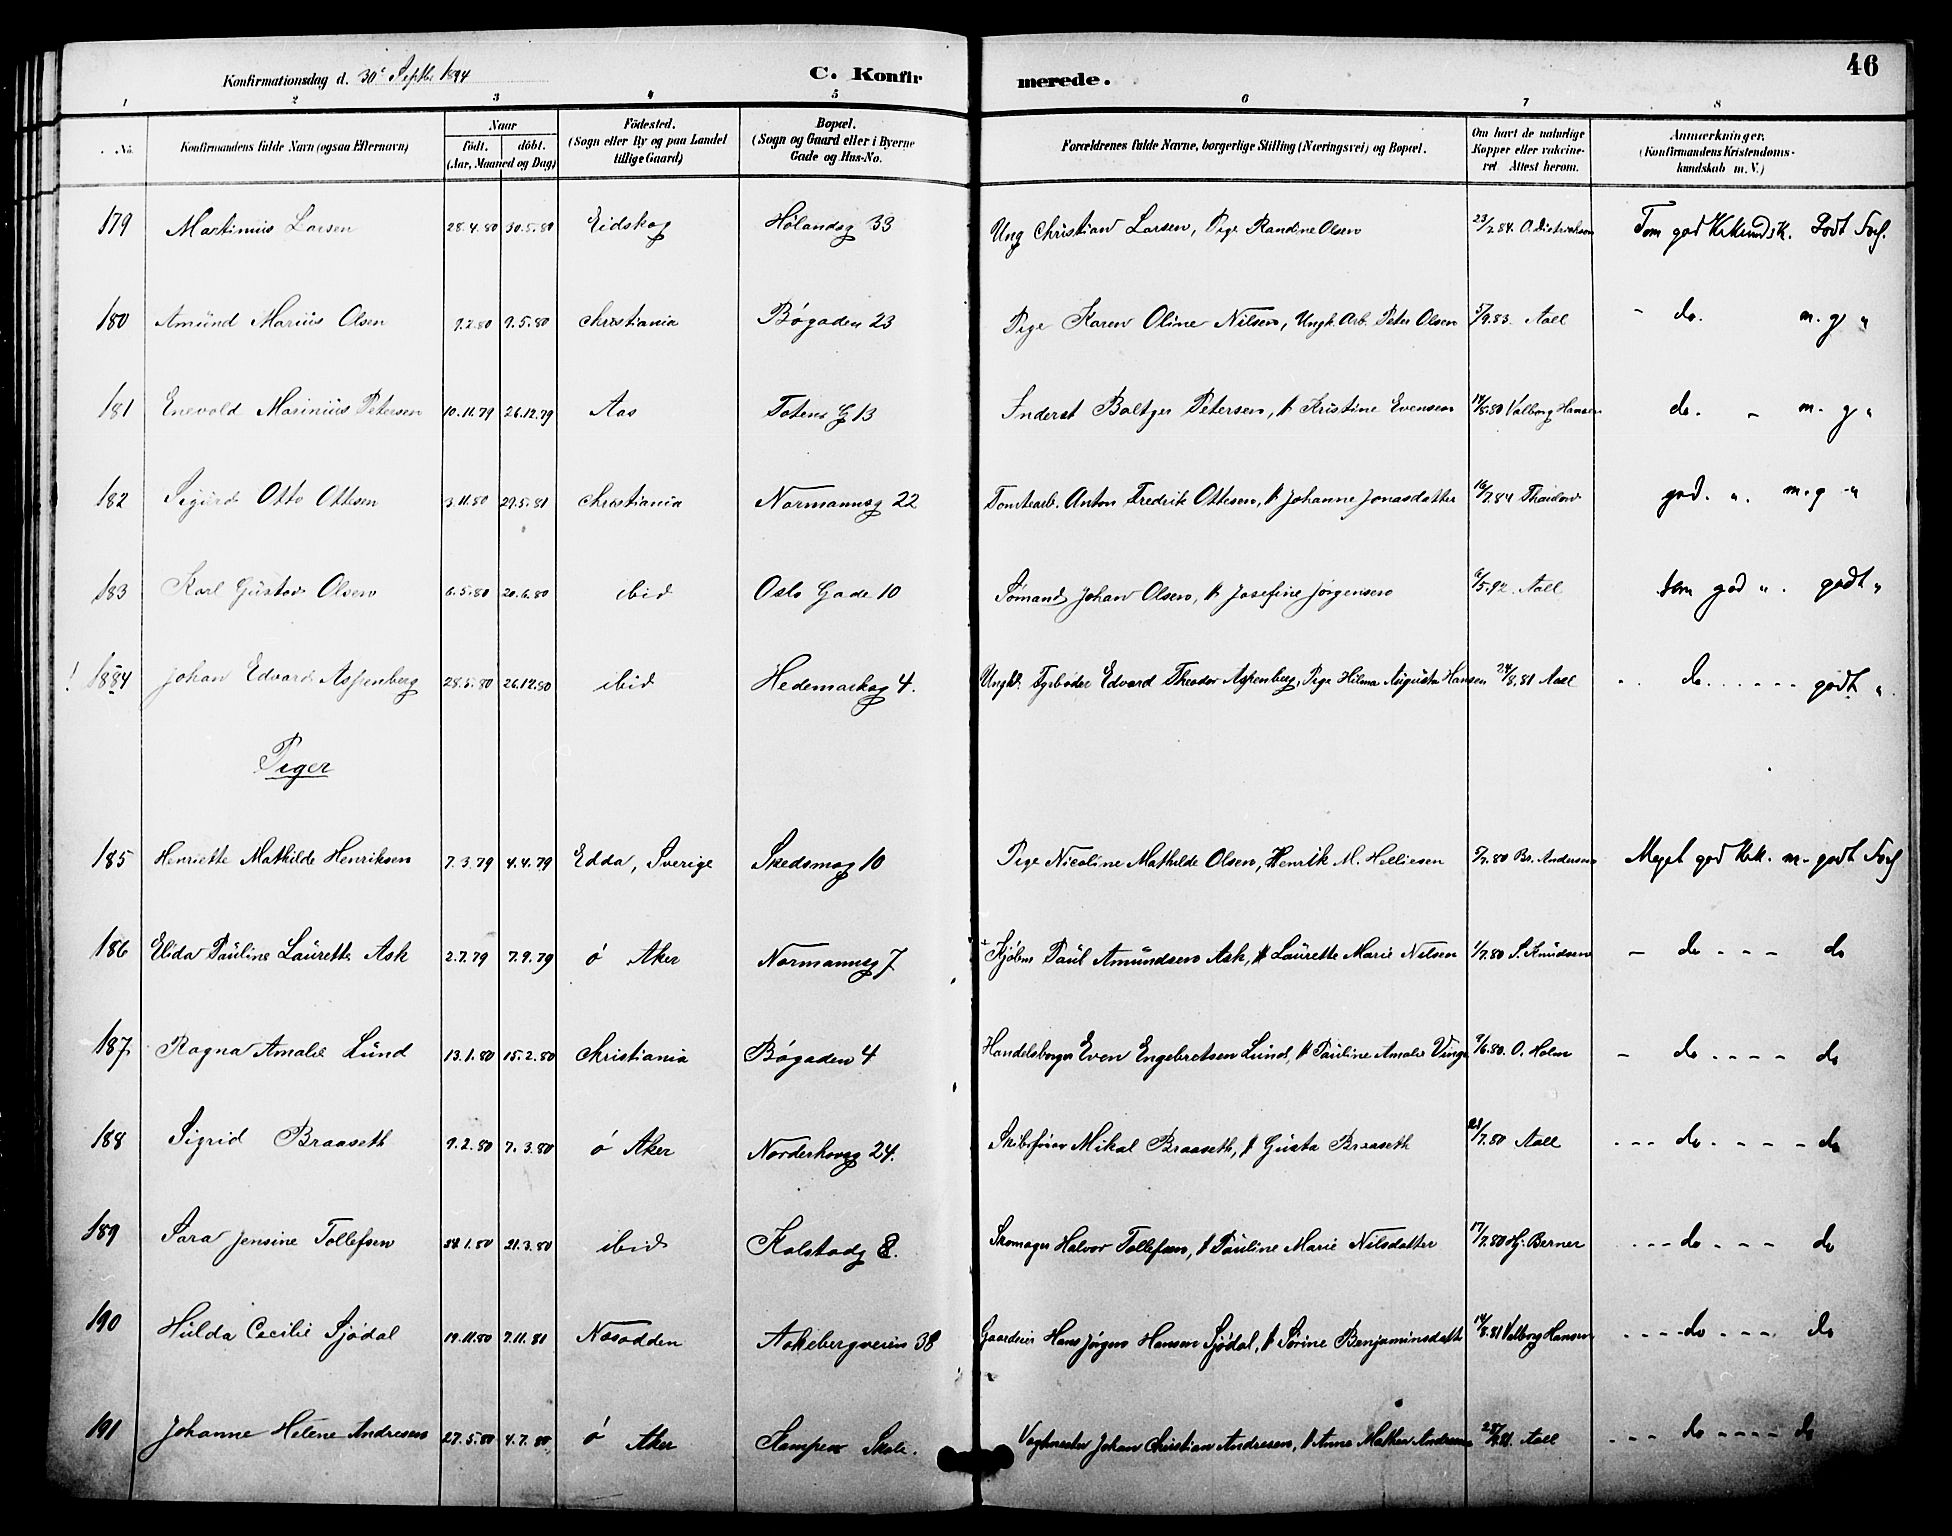 46
Konfirmationsdag d. 30te Septbr 1894
C. Konfirmerede.
1 2 3 4 5 6 7 8
No. Konfirmandens fulde Navn (ogsaa Efternavn) Naar født. døbt. (Aar, Maaned og Dag) Födested. (Sogn eller By og paa Landet tillige Gaard) Bopæl. (Sogn og Gaard eller i Byerne Gade og Hus-No. Forældrenes fulde Navne, borgerlige Stilling (Næringsvei) og Bopæl. Om havt de naturlige Kopper eller vakcineret Attest herom. Anmærkninger. (Konfirmandens Kristendomskundskab m. V.)
179 Martinius Larsen 28.4.80 30.5.80 Eidskog Hølandsg 33 Ung Christian Larsen, Pige Randine Olsen 23/7 84. O. Dietrichson Tem god Kr.kundsk. Godt Forh.
180 Amund Marius Olsen 9.2.80 9.5.80 Christiania Bøgaden 23 Pige Karen Oline Nilsen, Ungk. Arb. Peter Olsen 5/9.83. Aall - do. m. g "
181 Enevold Marinius Petersen 10.11.79 26.12.79 Aas Totens G 13 Inderst Baltzer Petersen, h Kristine Evensen 14/8.80 Valborg Hansen do. - m. g "
182 Sigurd Otto Ottesen 3.11.80 29.5.81 Christiania Normannsg 22 Tomtearb. Anton Fredrik Ottesen, h Johanne Jonasdatter 16/7 84 Thaulow god. ". m. g -"
183 Karl Gustav Olsen 6.5.80 20.6.80 ibid Oslo Gade 10 Sømand Johan Olsen, h. Josefine Jørgensen 6/5.92. Aall tem god ". godt "
! 184 Johan Edvard Aspenberg 28.5.80 26.12.80 ibid Hedemarksg 4. Ungk. Fyrbøder Edvard Theodor Aspenberg, Pige Hilma Augusta Hansen 24/8.81 Aall do. godt "
Piger
185 Henriette Mathilde Henriksen 7.3.79 4.4.79 Edda, Sverige Skedsmog 10 Pige Nicoline Mathilde Olsen, Henrik M. Helliesen 5/7.80 Br. Andersen Meget god Krk. m- godt Forh
186 Elida Pauline Laurette Ask 2.7.79 7.9.79 ø Aker Normannsg 7 Kjøbm Paul Amundsen Ask, h Laurette Marie Nilsen 1/7.80 S. Knudsen - do - - - do
187 Ragna Amalie Lund 13.1.80 15.2.80 Christiania Bøgaden 4 Handelsborger Even Engebretsen Lund, h Pauline Amalie Vinge 7/6.80. O. Holm - do - - - - do
188 Sigrid Braaseth 9.2.80 7.3.80 ø Aker Norderhovsg 24. Skibsfører Mikal Braaseth, h Gusta Braaseth 23/7.80 Aall - - - do - - - - do
189 Sara Jensine Tollefsen 24.1.80 21.3.80 ibid Kolstadg 8. Skomager Halvor Tollefsen, h Pauline Marie Nilsdatter 17/7.80 Hj. Berner - - - do - - - do
190 Hulda Cecilie Sjødal 19.11.80 7.11.81 Nesodden Aakebergveien 38 Gaardeier Hans Jørgen Hansen Sjødal, h Sørine Benjaminsdatter 14/8.81 Valborg Hansen - - - - do - - - do
191 Johanne Helene Andresen 27.5.80 4.7.80 ø Aker Kampen Skole. Vagtmester Johan Christian Andresen, h Anne Mathea Andresen Aall - - - do - - - - do